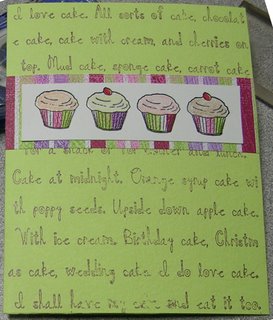 I love cake. All sorts of cake, chocolat
e cake, cake with cream, and cherries on
top. Mud cake, sponge cake, carrot cake
for a snack or for dinner and lunch.
Cake at midnight. Orange syrup cake wi
th poppy seeds. Upside down apple cake.
With ice cream. Birthday cake, Christm
as cake, wedding cake. I do love cake.
I shall have my cake and eat it too.